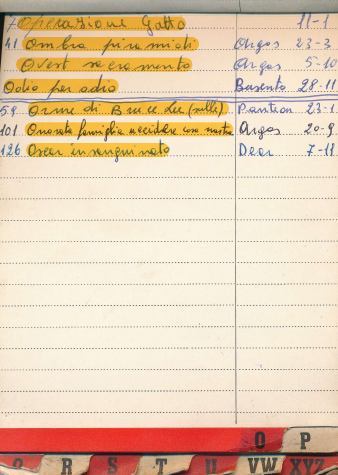 7 Operazione Gatto 11-1
41 Ombra piramidi Argos 23-3
Ovest sacramento Argos 5-10
Odio per odio Busento 28-11
59 Orme di Bruce Lee (sulle) Pantheon 23-1
101 Onorata famiglia uccidere cosa nostra Argos 20-9
126 Oscar insanguinato Dear 7-11
O P
Q R S T U VW XYZ